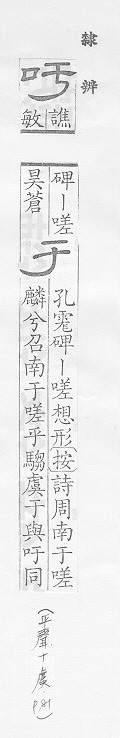 隸辨
吁
譙
敏
碑丨嗟
昊蒼
于
孔彪碑丨嗟想形按詩周南于嗟
麟兮召南于嗟乎騶虞于與吁同
(平聲十虞 P.81)